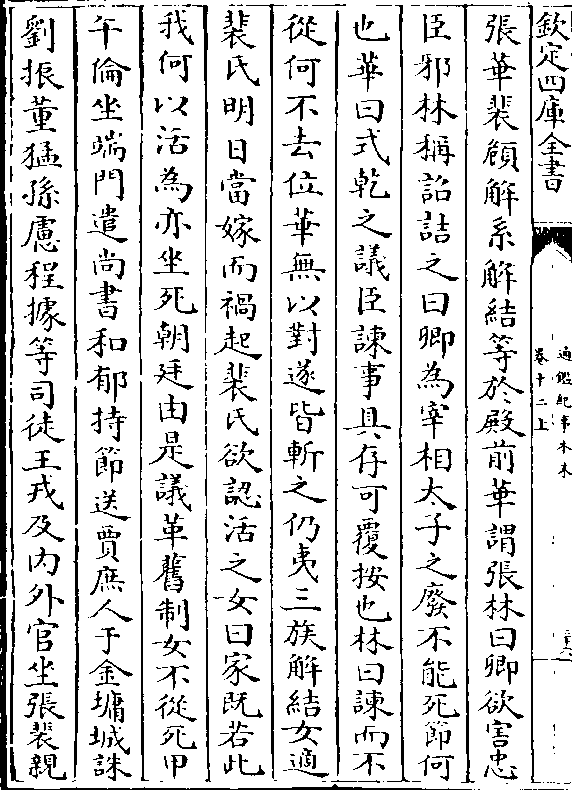 欽定四庫全書
通鑑紀事本末
卷十二上
張華裴頠解系解結等於殿前華謂張林曰卿欲害忠
臣邪林稱詔詰之曰卿為宰相太子之廢不能死節何
也華曰式乾之議臣諫事具存可覆按也林曰諫而不
從何不去位華無以對遂皆斬之仍夷三族解結女適
裴氏明日當嫁而禍起裴氏欲認活之女曰家既若此
我何以活為亦坐死朝廷由是議革舊制女不從死甲
午倫坐端門遣尚書和郁持節送賈庶人于金墉城誅
劉振董猛孫慮程據等司徒王戎及内外官坐張裴親